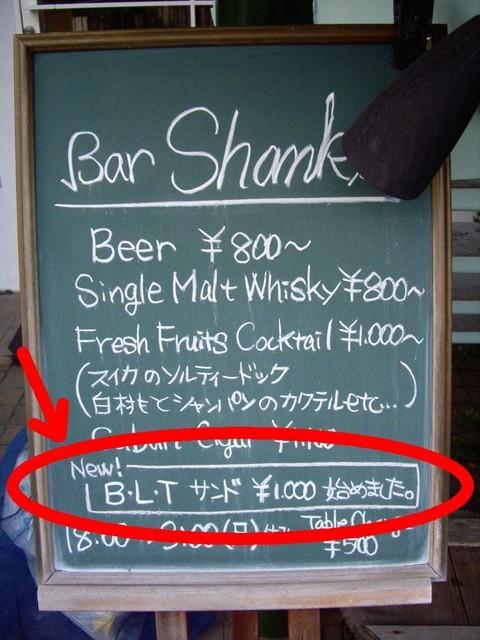 Bar Shanks
Beer ¥800〜
Single Malt Whisky ¥800〜
Fresh Fruits Cocktail ¥1.000〜
(スイカのソルティードック
白桃とシャンパンのカクテルetc…)
Cigar
New!
B・L・T サンド ¥1.000 始めました。
18:00〜3:00(日)
Table Charge
¥500